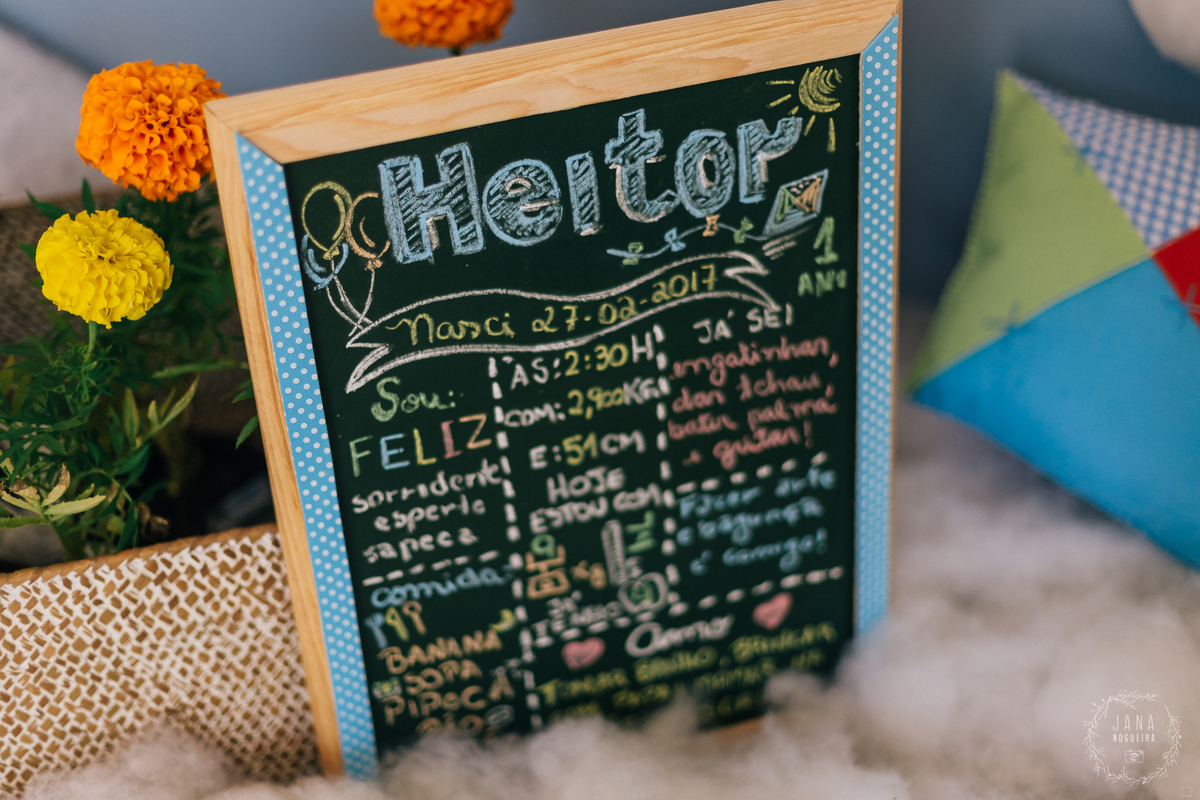 Heitor
1
ANO
Nasci 27-02-2017
Sou:
FELIZ
sorridente
esperto
sapeca
comida:
BANANA
SOPA
PIPOCA
ÀS: 2:30H
COM: 2,900KG
E: 51CM
HOJE
ESTOU COM
JÁ SEI
engatinhar,
dar tchau,
bater palma
e gritar!
Fazer arte
e bagunça
é comigo!
Amo
TOMAR BANHO, BRINCAR
JANA
NOGUEIRA